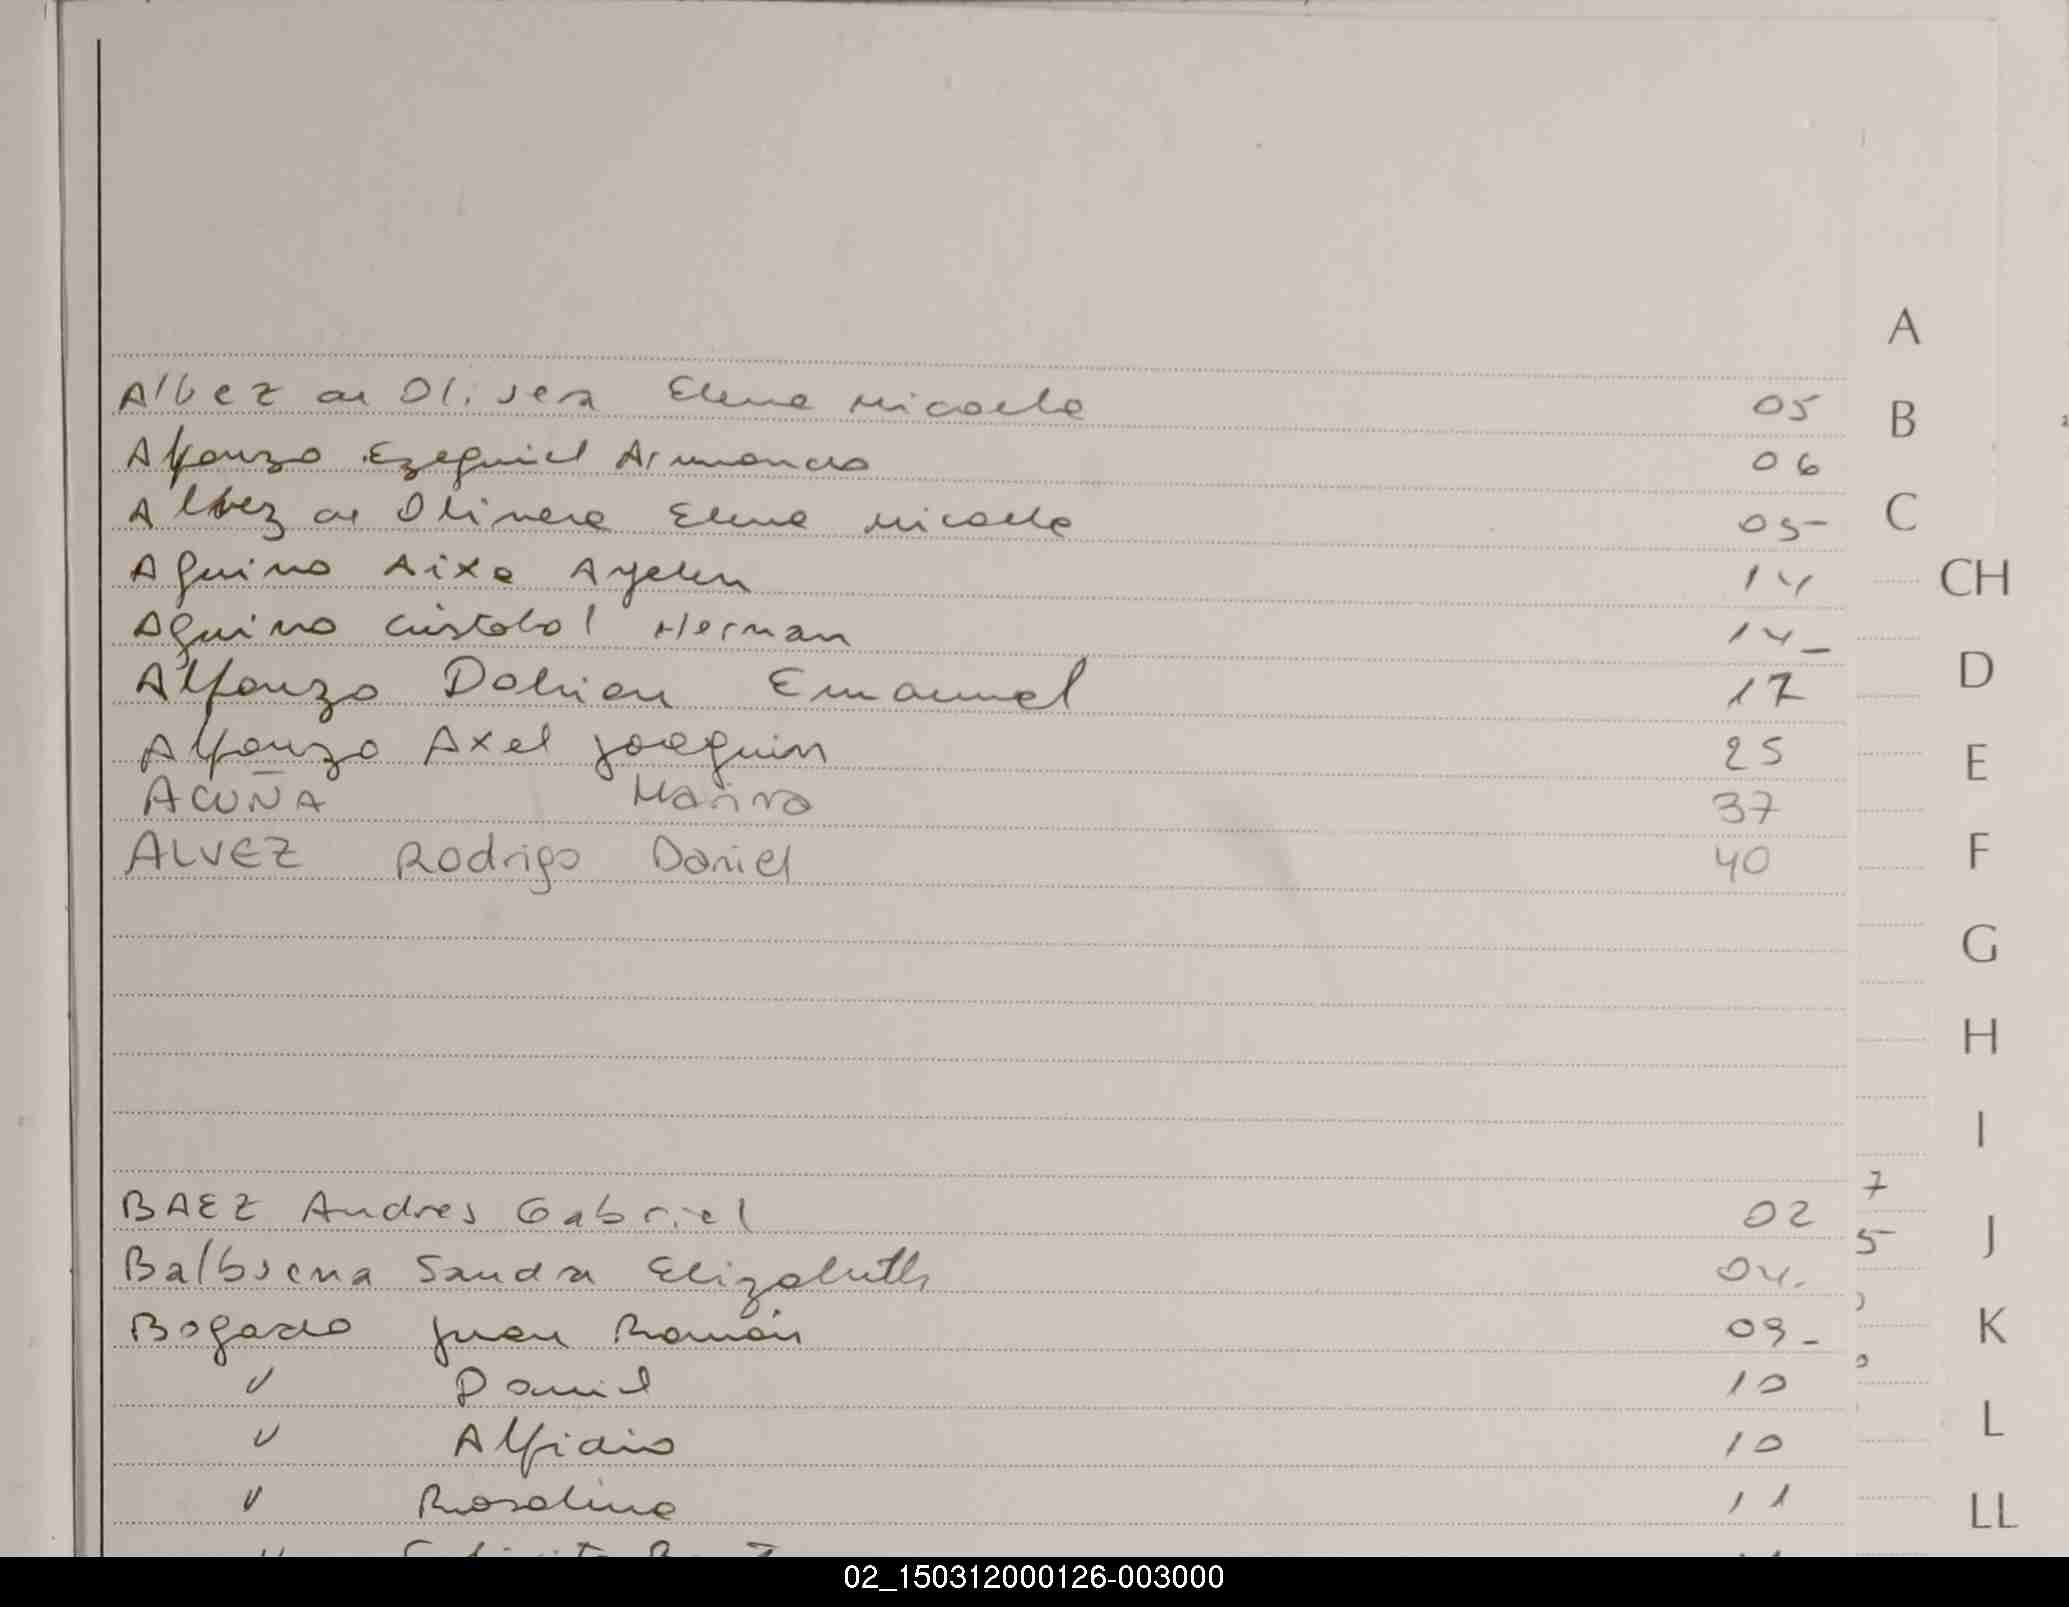 A
Albez de Olivera Elena Micaela 05
B
Alfonzo Ezequiel Armando 06
Albez de Olivera Elena Micaela 05-
C
Aquino Aixa Ayelen 14
CH
Aquino Cristobol Hernan 14-
Alfonzo Dohian Emanuel 17
D
Alfonzo Axel Joaquin 25
E
ACUÑA Marina 37
ALVEZ Rodrigo Daniel 40
F
G
H
I
7
BAEZ Andres Gabriel 02
J
5-
Balbuena Sandra Elizabeth 04.
Bogado Juan Ramón 09-
K
" Daniel 10
L
" Alfidio 10
" Rosalina 11
LL
02_150312000126-003000